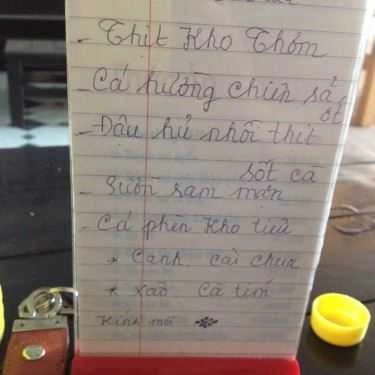 - Thịt Kho Thơm
- Cá hường chiên sả
ớt
- Đậu hủ nhồi thịt
sốt cà
- Sườn ram mặn
- Cá phèn kho tiêu
* Canh cải chua
* xào cà tím
Kính mời